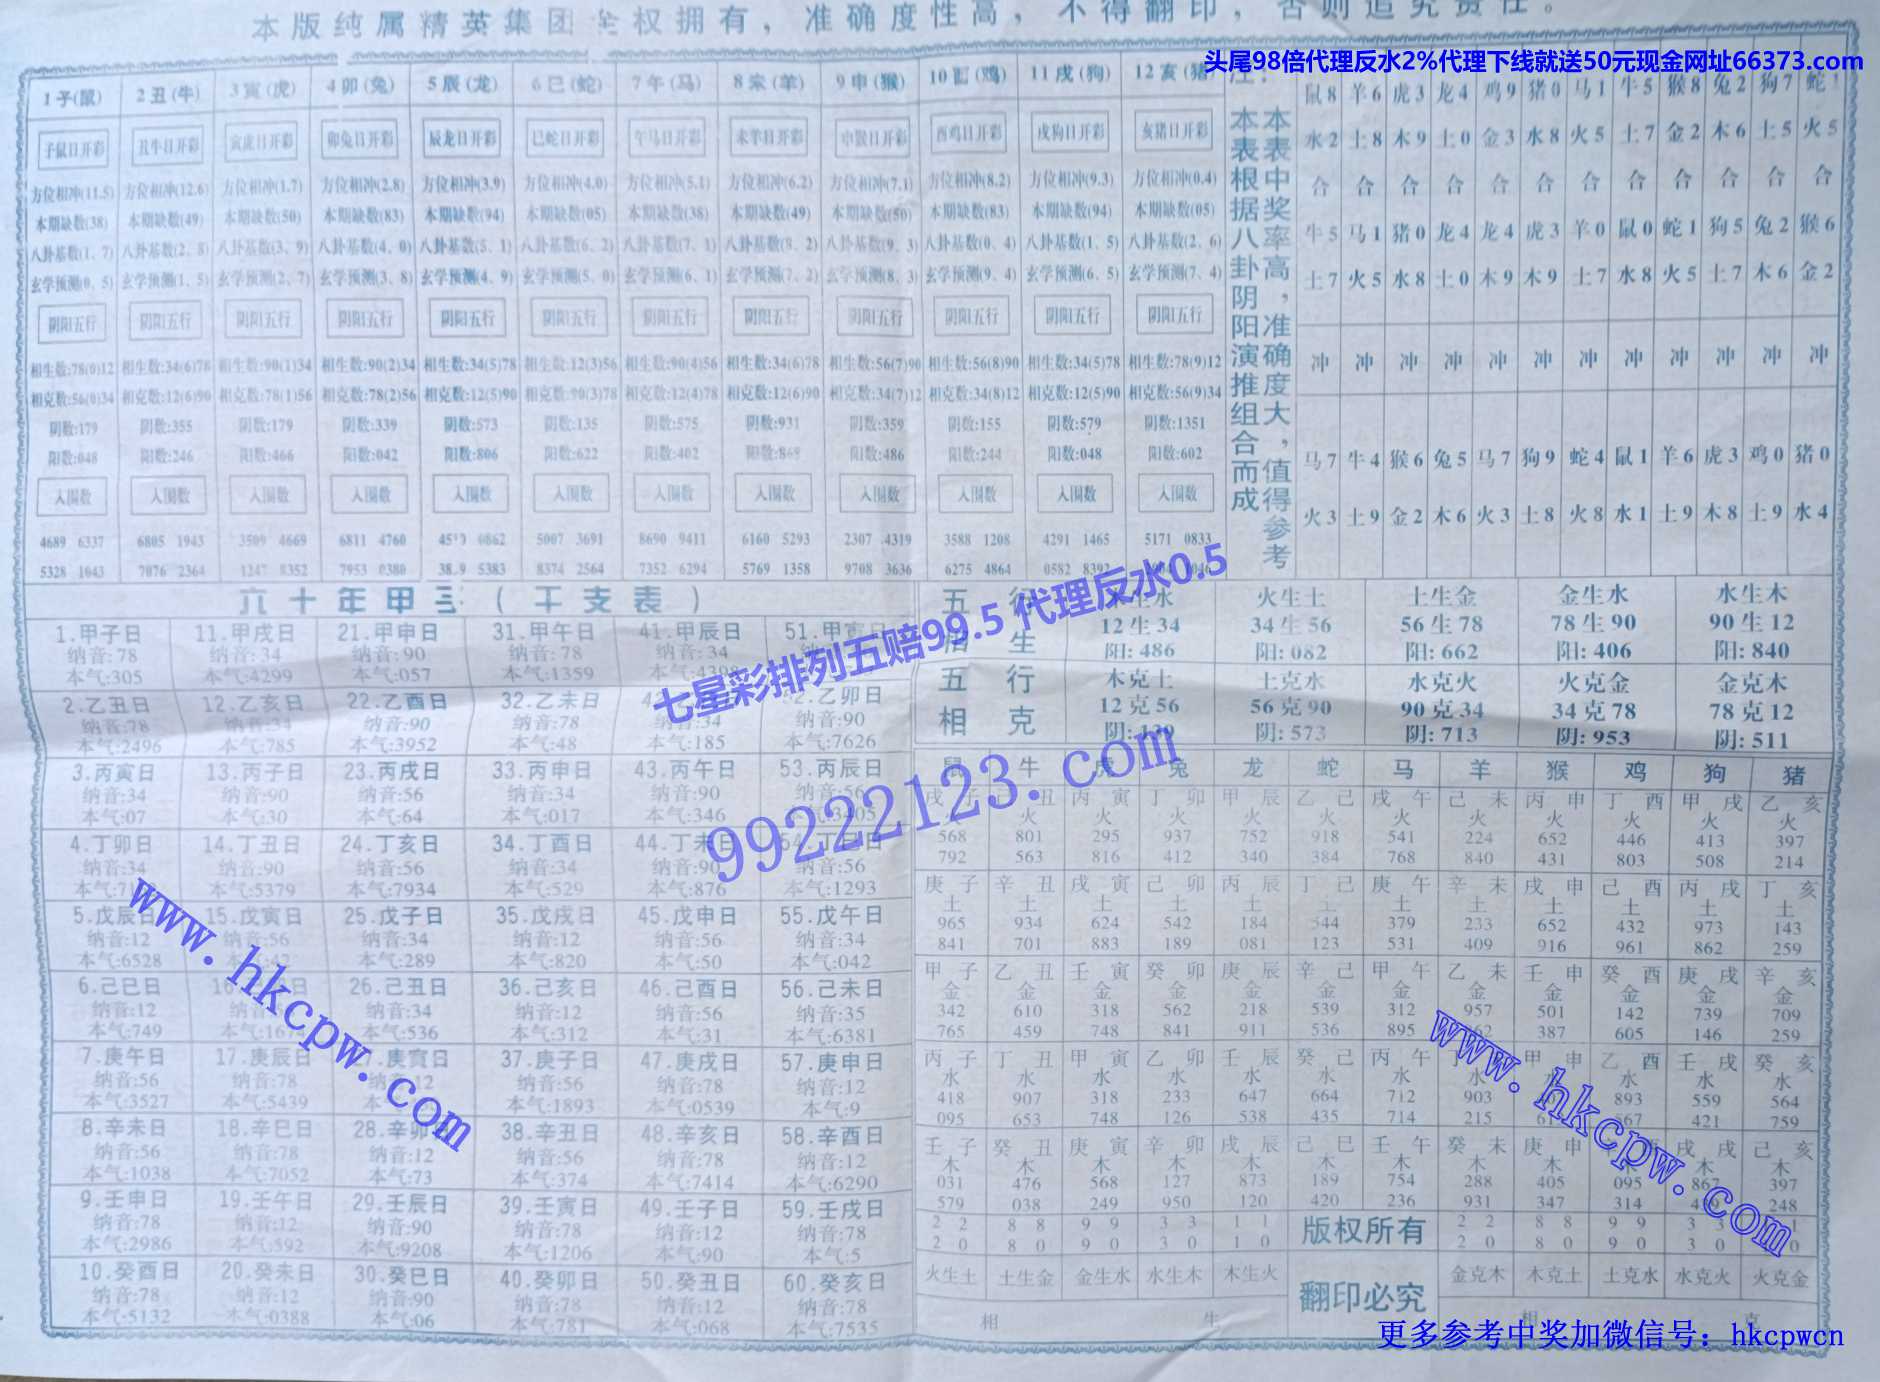 本版纯属精英集团 权拥有，准确度性高，不得翻印，否则追究责任。
头尾98倍代理反水2%代理下线就送50元现金网址66373.com
1子(鼠) 2丑(牛) 3寅(虎) 4卯(兔) 5辰(龙) 6巳(蛇) 7午(马) 8未(羊) 9申(猴) 10酉(鸡) 11戌(狗) 12亥(猪
子鼠日开彩 丑牛日开彩 寅虎日开彩 卯兔日开彩 辰龙日开彩 巳蛇日开彩 午马日开彩 未羊日开彩 申猴日开彩 酉鸡日开彩 戌狗日开彩 亥猪日开彩
方位相冲(11.5) 方位相冲(12.6) 方位相冲(1.7) 方位相冲(2.8) 方位相冲(3.9) 方位相冲(4.0) 方位相冲(5.1) 方位相冲(6.2) 方位相冲(7.1) 方位相冲(8.2) 方位相冲(9.3) 方位相冲(0.4)
本期缺数(38) 本期缺数(49) 本期缺数(50) 本期缺数(83) 本期缺数(94) 本期缺数(05) 本期缺数(38) 本期缺数(49) 本期缺数(50) 本期缺数(83) 本期缺数(94) 本期缺数(05)
八卦基数(1、7) 八卦基数(2、8) 八卦基数(3、9) 八卦基数(4、0) 八卦基数(5、1) 八卦基数(6、2) 八卦基数(7、1) 八卦基数(8、2) 八卦基数(9、3) 八卦基数(0、4) 八卦基数(1、5) 八卦基数(2、6)
玄学预测(0、5) 玄学预测(1、5) 玄学预测(2、7) 玄学预测(3、8) 玄学预测(4、9) 玄学预测(5、0) 玄学预测(6、1) 玄学预测(7、2) 玄学预测(8、3) 玄学预测(9、4) 玄学预测(6、5) 玄学预测(7、4)
阴阳五行 阴阳五行 阴阳五行 阴阳五行 阴阳五行 阴阳五行 阴阳五行 阴阳五行 阴阳五行 阴阳五行 阴阳五行 阴阳五行
相生数:78(0)12 相生数:34(6)78 相生数:90(1)34 相生数:90(2)34 相生数:34(5)78 相生数:12(3)56 相生数:90(4)56 相生数:34(6)78 相生数:56(7)90 相生数:56(8)90 相生数:34(5)78 相生数:78(9)12
相克数:56(0)34 相克数:12(6)90 相克数:78(1)56 相克数:78(2)56 相克数:12(5)90 相克数:90(3)78 相克数:12(4)78 相克数:12(6)90 相克数:34(7)12 相克数:34(8)12 相克数:12(5)90 相克数:56(9)34
阴数:179 阴数:355 阴数:179 阴数:339 阴数:573 阴数:135 阴数:575 阴数:931 阴数:359 阴数:155 阴数:579 阴数:1351
阳数:048 阳数:246 阳数:466 阳数:042 阳数:806 阳数:622 阳数:402 阳数: 阳数:486 阳数:244 阳数:048 阳数:602
入围数 入围数 入围数 入围数 入围数 入围数 入围数 入围数 入围数 入围数 入围数 入围数
4689 6337 6805 1943 3509 4669 6811 4760 0862 5007 3691 8690 9411 6160 5293 2307 4319 3588 1208 4291 1465 5171 0833
5328 1043 7076 2364 1247 8352 7953 0380 5383 8374 2564 7352 6294 5769 1358 9708 3636 6275 4864 0582 8392
注：
本表根据八卦阴阳演推组合而成
本表中奖率高，准确度大，值得参考
鼠8 羊6 虎3 龙4 鸡9 猪0 马1 牛5 猴8 兔2 狗7 蛇1
水2 土8 木9 土0 金3 水8 火5 土7 金2 木6 土5 火5
合 合 合 合 合 合 合 合 合 合 合 合
牛5 马1 猪0 龙4 龙4 虎3 羊0 鼠0 蛇1 狗5 兔2 猴6
土7 火5 水8 土0 木9 木9 土7 水8 火5 土7 木6 金2
冲 冲 冲 冲 冲 冲 冲 冲 冲 冲 冲 冲
马7 牛4 猴6 兔5 马7 狗9 蛇4 鼠1 羊6 虎3 鸡0 猪0
火3 土9 金2 木6 火3 土8 火8 水1 土9 木8 土9 水4
六十年甲 （干支表）
1.甲子日 11.甲戌日 21.甲申日 31.甲午日 41.甲辰日 51.甲寅日
纳音:78 纳音:34 纳音:90 纳音:78 纳音:34
本气:305 本气:4299 本气:057 本气:1359 本气:4398
2.乙丑日 12.乙亥日 22.乙酉日 32.乙未日 乙卯日
纳音:78 纳音:34 纳音:90 纳音:78 纳音:34 纳音:90
本气:2496 本气:785 本气:3952 本气:48 本气:185 本气:7626
3.丙寅日 13.丙子日 23.丙戌日 33.丙申日 43.丙午日 53.丙辰日
纳音:34 纳音:90 纳音:56 纳音:34 纳音:90 纳音:56
本气:07 本气:30 本气:64 本气:017 本气:346
4.丁卯日 14.丁丑日 24.丁亥日 34.丁酉日 44.丁未日
纳音:34 纳音:90 纳音:56 纳音:34 纳音:90 纳音:56
本气:5379 本气:7934 本气:529 本气:876 本气:1293
5.戊辰日 15.戊寅日 25.戊子日 35.戊戌日 45.戊申日 55.戊午日
纳音:12 纳音:56 纳音:34 纳音:12 纳音:56 纳音:34
本气:6528 本气:289 本气:820 本气:50 本气:042
6.己巳日 26.己丑日 36.己亥日 46.己酉日 56.己未日
纳音:12 纳音:34 纳音:12 纳音:56 纳音:35
本气:749 本气:536 本气:312 本气:31 本气:6381
7.庚午日 17.庚辰日 庚寅日 37.庚子日 47.庚戌日 57.庚申日
纳音:56 纳音:78 纳音:12 纳音:56 纳音:78 纳音:12
本气:3527 本气:5439 本气:1893 本气:0539 本气:9
8.辛未日 18.辛巳日 28.辛卯日 38.辛丑日 48.辛亥日 58.辛酉日
纳音:56 纳音:78 纳音:12 纳音:56 纳音:78 纳音:12
本气:1038 本气:7052 本气:73 本气:374 本气:7414 本气:6290
9.壬申日 19.壬午日 29.壬辰日 39.壬寅日 49.壬子日 59.壬戌日
纳音:78 纳音:12 纳音:90 纳音:78 纳音:12 纳音:78
本气:2986 本气:592 本气:9208 本气:1206 本气:90 本气:5
10.癸酉日 20.癸未日 30.癸巳日 40.癸卯日 50.癸丑日 60.癸亥日
纳音:78 纳音:12 纳音:90 纳音:78 纳音:12 纳音:78
本气:5132 本气:0388 本气:06 本气:781 本气:068 本气:7535
五行 生水 火生土 土生金 金生水 水生木
12生34 34生56 56生78 78生90 90生12
相生 阳:486 阳:082 阳:662 阳:406 阳:840
五行 木克土 土克水 水克火 火克金 金克木
相克 12克56 56克90 90克34 34克78 78克12
阴:139 阴:573 阴:713 阴:953 阴:511
鼠 牛 虎 兔 龙 蛇 马 羊 猴 鸡 狗 猪
戊子 丑 丙寅 丁卯 甲辰 乙己 戊午 己未 丙申 丁酉 甲戌 乙亥
火 火 火 火 火 火 火 火 火 火
568 801 295 937 752 918 541 224 652 446 413 397
792 563 816 412 340 384 768 840 431 803 508 214
庚子 辛丑 戊寅 己卯 丙辰 丁己 庚午 辛未 戊申 己酉 丙戌 丁亥
土 土 土 土 土 土 土 土 土 土 土 土
965 934 624 542 184 544 379 233 652 432 973 143
841 701 883 189 081 123 531 409 916 961 862 259
甲子 乙丑 壬寅 癸卯 庚辰 辛己 甲午 乙未 壬申 癸酉 庚戌 辛亥
金 金 金 金 金 金 金 金 金 金 金 金
342 610 318 562 218 539 312 957 501 142 739 709
765 459 748 841 911 536 895 387 605 146 259
丙子 丁丑 甲寅 乙卯 壬辰 癸己 丙午 甲申 乙酉 壬戌 癸亥
水 水 水 水 水 水 水 水 水 水 水
418 907 318 233 647 664 712 903 893 559 564
095 653 748 126 538 435 714 215 421 759
壬子 癸丑 庚寅 辛卯 戊辰 己巳 壬午 癸未 庚申 戌戌 己亥
木 木 木 木 木 木 木 木 木 木 木
031 476 568 127 873 189 754 288 405 095 867 397
579 038 249 950 120 420 236 931 347 314 248
2 2 8 8 9 9 3 3 1 1 版权所有 2 2 8 8 9 9 3 3
2 0 8 0 9 0 3 0 1 0 2 0 8 0 9 0 3 0
火生土 土生金 金生水 水生木 木生火 翻印必究 金克木 木克土 土克水 水克火 火克金
相 生 相 克
七星彩排列五赔99.5 代理反水0.5
99222123.com
www.hkcpw.com
www.hkcpw.com
更多参考中奖加微信号：hkcpwcn